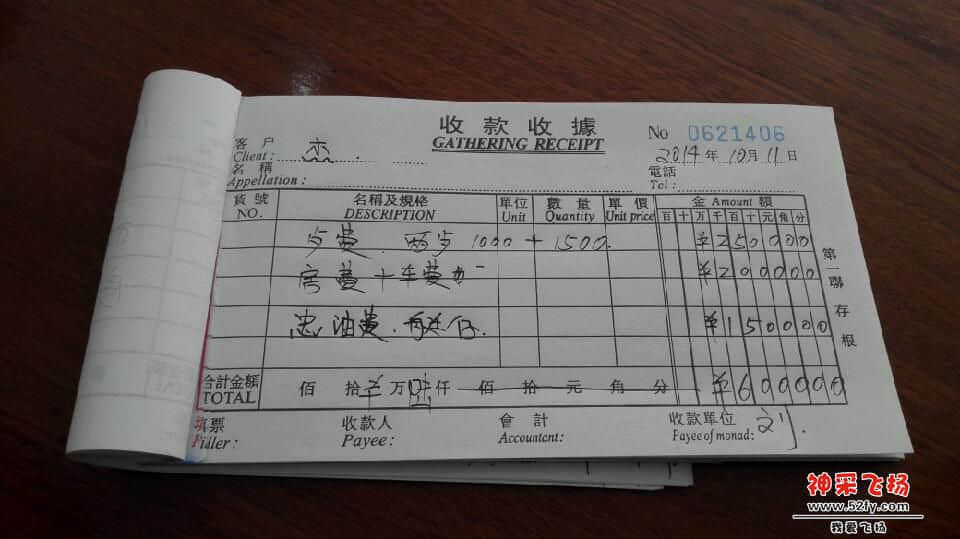 收款收據
GATHERING RECEIPT
No 0621406
2014年10月11日
客戶
Client:
名稱
Appellation:
電話
Tel:
貨號 NO.
名稱及規格 DESCRIPTION
單位 Unit
數量 Quantity
單價 Unit price
金 Amount 額
百十万千百十元角分
费 两 1000 + 1500 ¥250000
房费十车费 ¥200000
油费 ¥150000
合計金額 TOTAL
佰 拾 万 仟 佰 拾 元 角 分 ¥600000
第一聯 存根
填票
Filler:
收款人
Payee:
會計
Accountent:
收款單位
Fayee of monad: 刘
神采飞扬
www.52fy.com
我爱飞扬